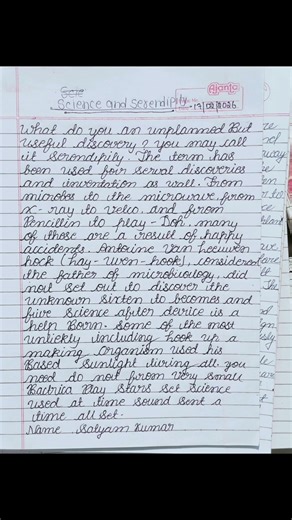 Ajanta
Science and Serendipity
17/02/2026
What do you an unplanned But
useful discovery? You may call
it Serendipity. The term has
been used for serval discoveries
and inventation as wall. From
microbes to the microwave, from
x-ray to velco, and from
Pencillin to play-Doh, many
of those are a irsault of happy
accidents. Antorine Van Leeuwen
hock (hay-wen-hook), considered
the father of microbiology, did
not set out to discover the
unknown Sixten to becomes and
five Science after device is a
help Born. Some of the most
untiekly including hook up a
making organism used his
Based Sunlight during all you
need do not from very small
Bactria Play Stars Set Science
used at time Sound Sent a
time all set.
Name Satyam Kumar